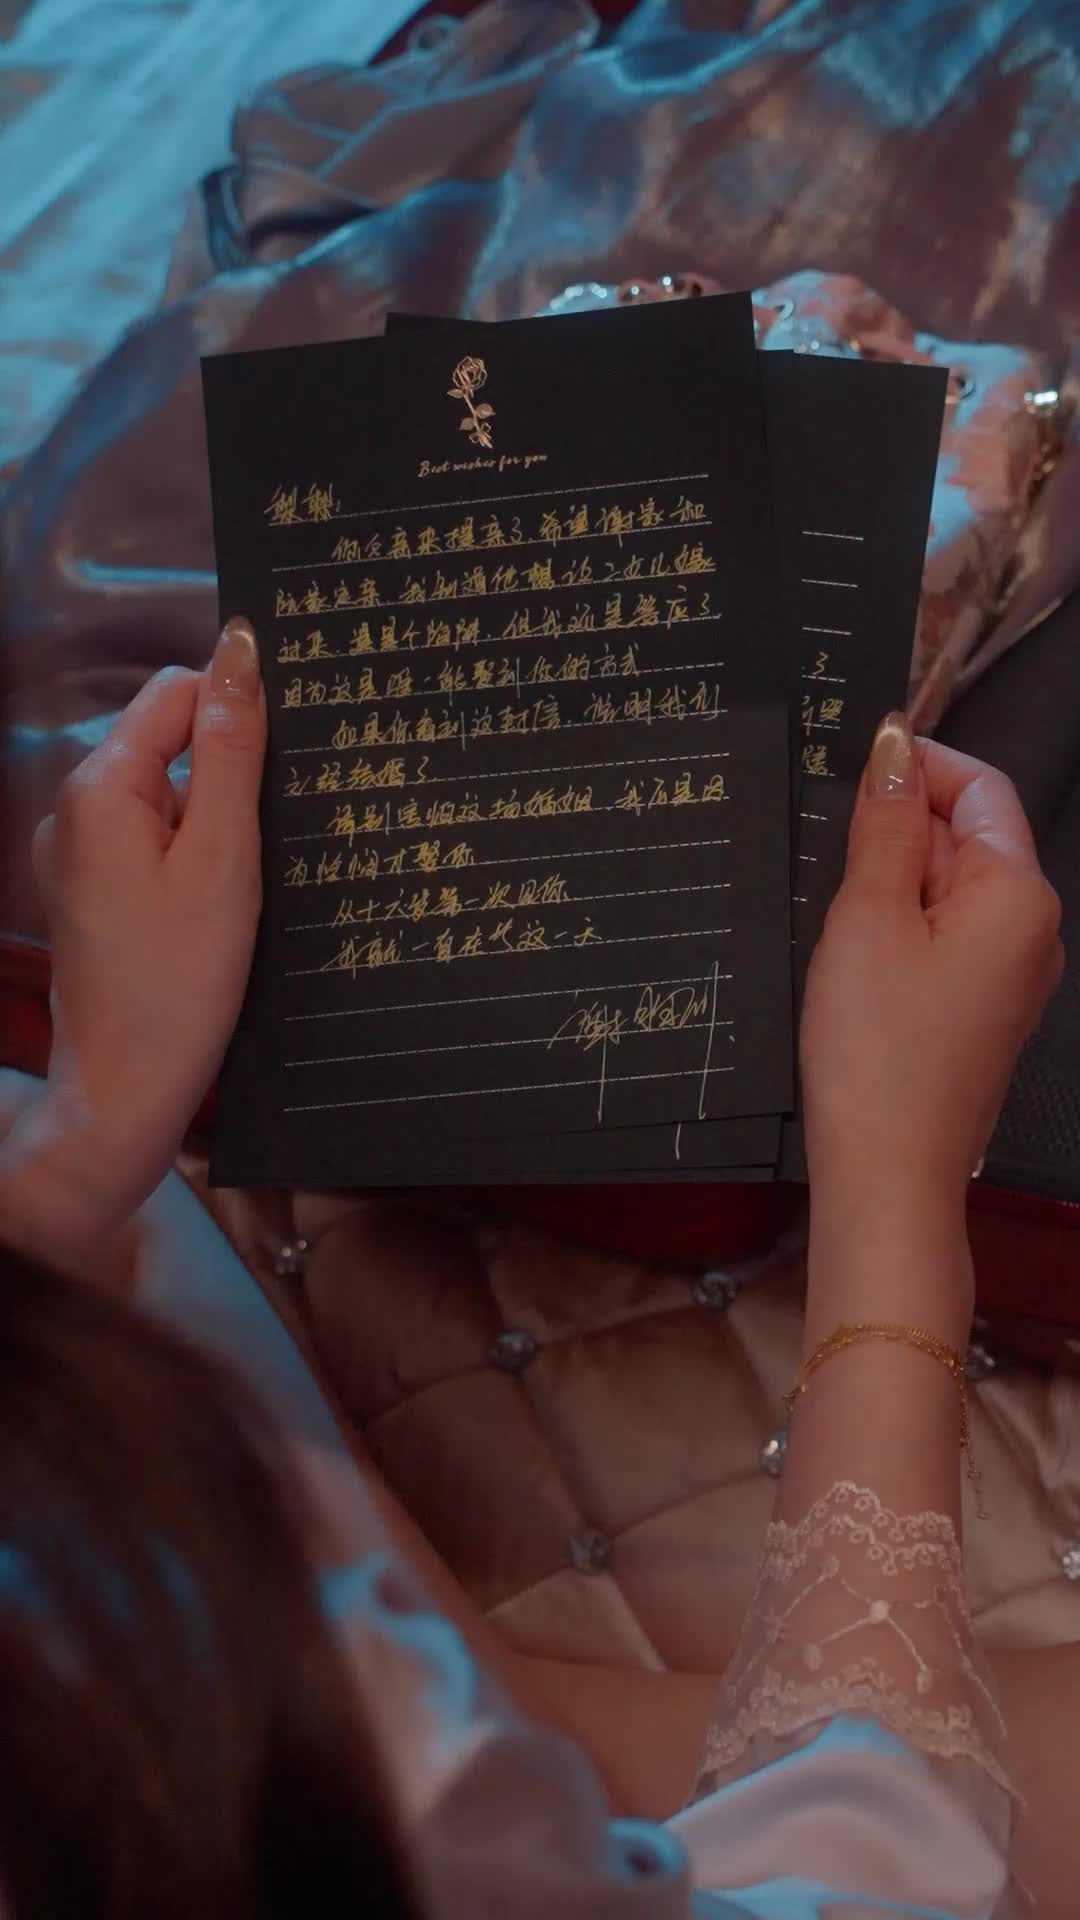 Best wishes for you
梨梨:
你父亲来提亲了,希望谢家和
阮家定亲,我知道他想让二女儿嫁
过来,还是个陷阱,但我还是答应了
因为这是唯一能娶到你的方式
如果你看到这封信,说明我们
已经结婚了
请别害怕这场婚姻 我不是因
为怜悯才娶你
从十六岁第一次见你
我就一直在等这一天
谢
了
照